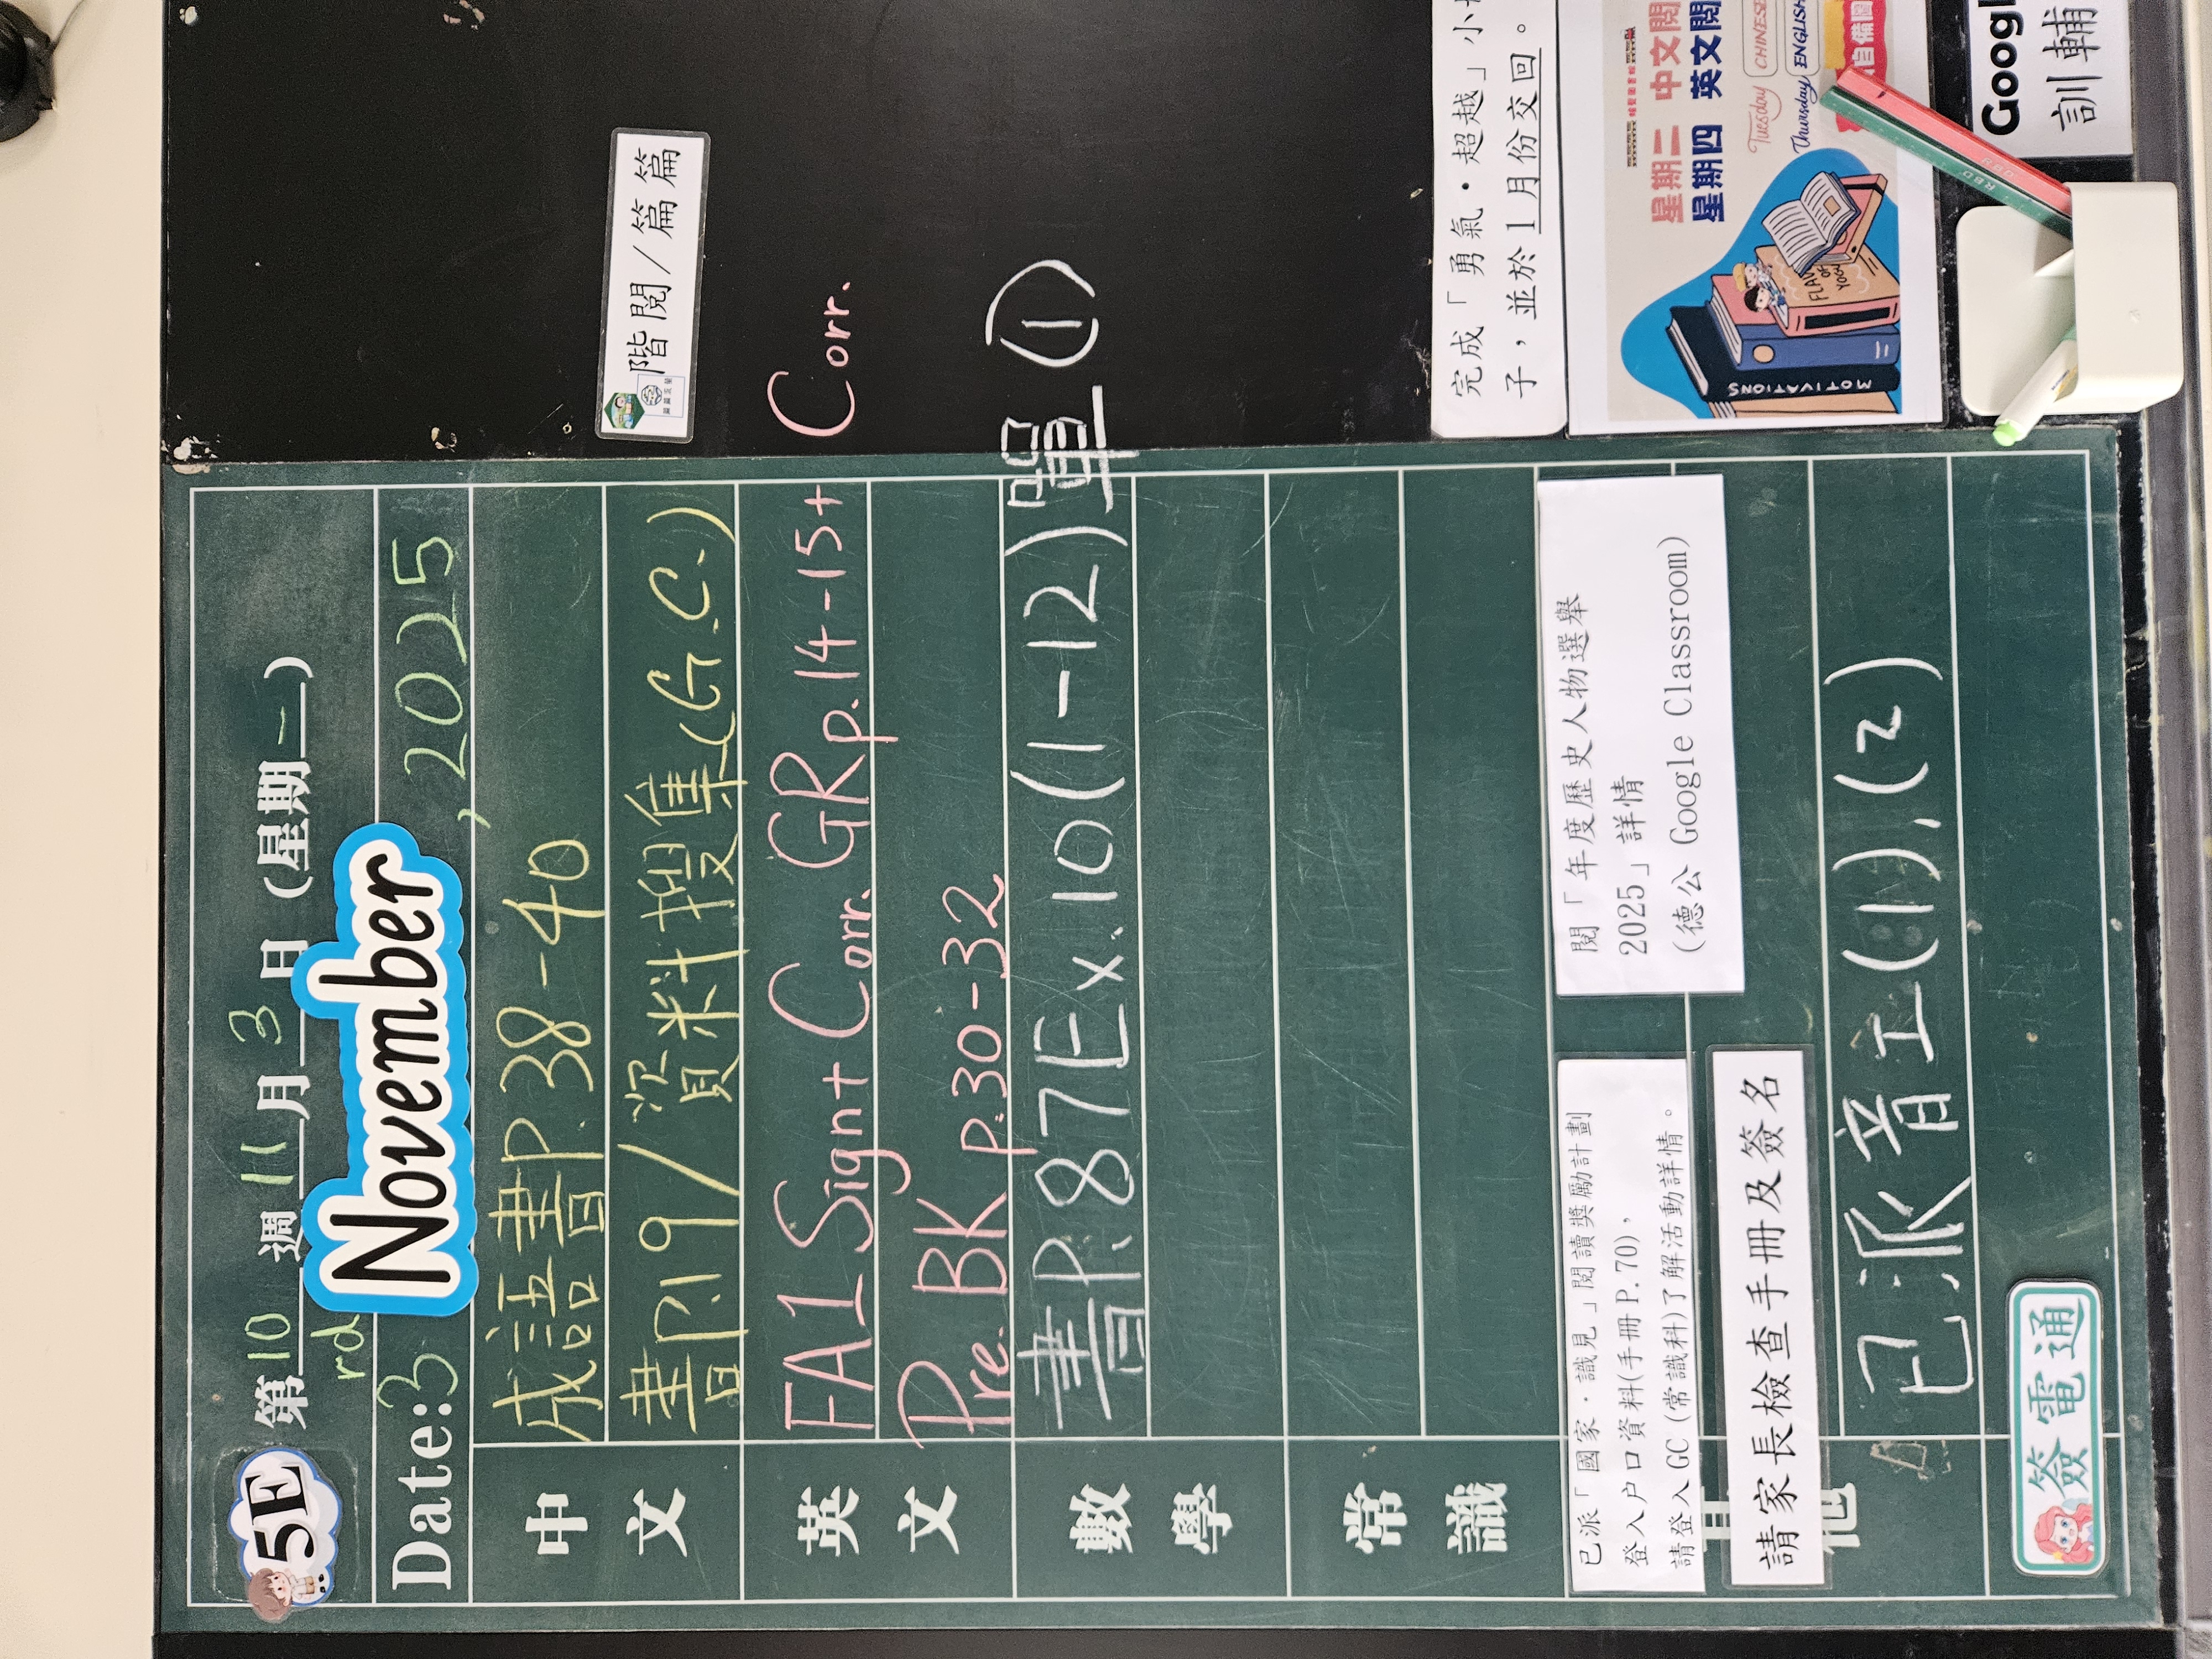 5E
第 10 週 11 月 3 日 (星期 一 )
Date: 3rd November, 2025
中文
成語書P.38-40
書P.19/資料搜集(G.C.)
階閱/篇篇
英文
FA1 Sign+ Corr. GRp.14-15+ Corr.
Pre. BK p.30-32
數學
書P.87Ex.10(1-12)單(1)
常識
已派「國家·識見」閱讀獎勵計劃
登入户口資料(手冊P.70),
請登入GC(常識科)了解活動詳情。
閱「年度歷史人物選舉
2025」詳情
(德公 Google Classroom)
完成「勇氣·超越」小
子,並於1月份交回。
請家長檢查手冊及簽名
已派音工(1),(2)
簽電通
星期二 中文閱
星期四 英文閱
Tuesday CHINESE
Thursday ENGLISH
自備圖
MOTIVATIONS
Googl
訓輔